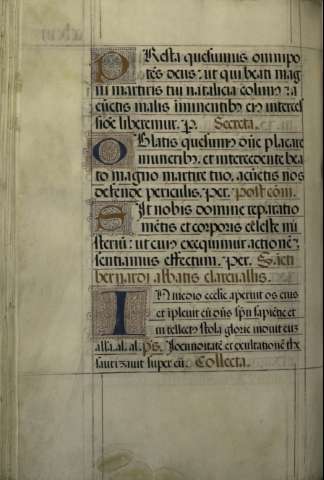 Presta quesumus omnipo
tēs deus: ut qui beati mag
ni martiris tui natalicia colimꝰ: a
cūctis malis imminētibꝰ eiꝰ interces
sióe liberemur. P. Secreta.
Oblatis quesumꝰ dñe placare
muneribꝰ. et intercedente bea
to magno martire tuo, a cūctis nos
defende periculis. Per. Post com̄.
Sit nobis domine reparatio
mētis et corporis celeste mi
steriū: ut cuiꝰ exequimur actionē:
sentiamus effectum. Per. Sācti
bernardi abbatis clarevallis.
In medio ecclīe aperuit os eius
et īplevit eū dñs spū sapiētie et
intellectꝰ stola glorie induit eū
alla. al. al. pś. Jocunditatē et exultationē thẹ
sauriʒavit super eū. Collecta.